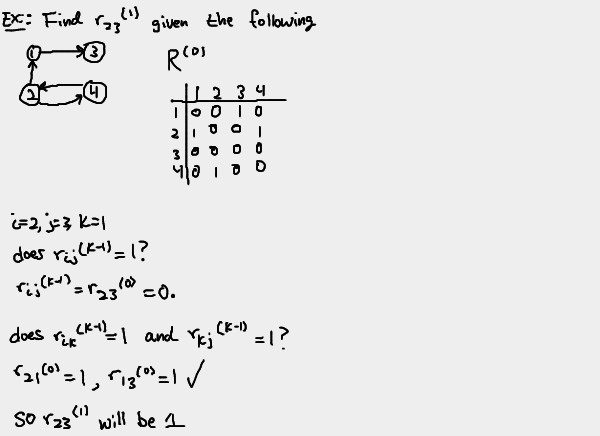 Ex: Find r₂₃⁽¹⁾ given the following
1 3
2 4
R⁽⁰⁾
1 2 3 4
1 0 0 1 0
2 1 0 0 1
3 0 0 0 0
4 0 1 0 0
i=2, j=3, k=1
does rᵢⱼ⁽ᵏ⁻¹⁾=1?
rᵢⱼ⁽ᵏ⁻¹⁾=r₂₃⁽⁰⁾=0.
does rᵢₖ⁽ᵏ⁻¹⁾=1 and rₖⱼ⁽ᵏ⁻¹⁾=1?
r₂₁⁽⁰⁾=1, r₁₃⁽⁰⁾=1 ✓
So r₂₃⁽¹⁾ will be 1